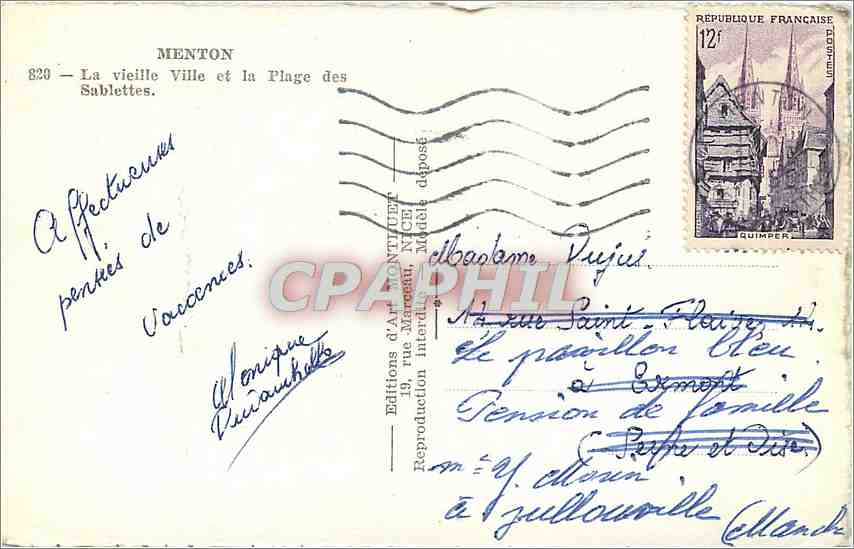 MENTON
820 — La vieille Ville et la Plage des
Sablettes.
Affectueuses
pensées de
vacances.
Monique
Editions d'Art MONTLUET
19, rue Marceau, NICE
Reproduction interdite - Modèle déposé
RÉPUBLIQUE FRANÇAISE
12f
POSTES
QUIMPER
CPARPHIL
Madame Dujus.
rue Saint-Flaive
Le pavillon bleu.
à Ermont
Pension de famille
(Seine et Oise)
Me Y. Morin
à Jullouville
(Manche